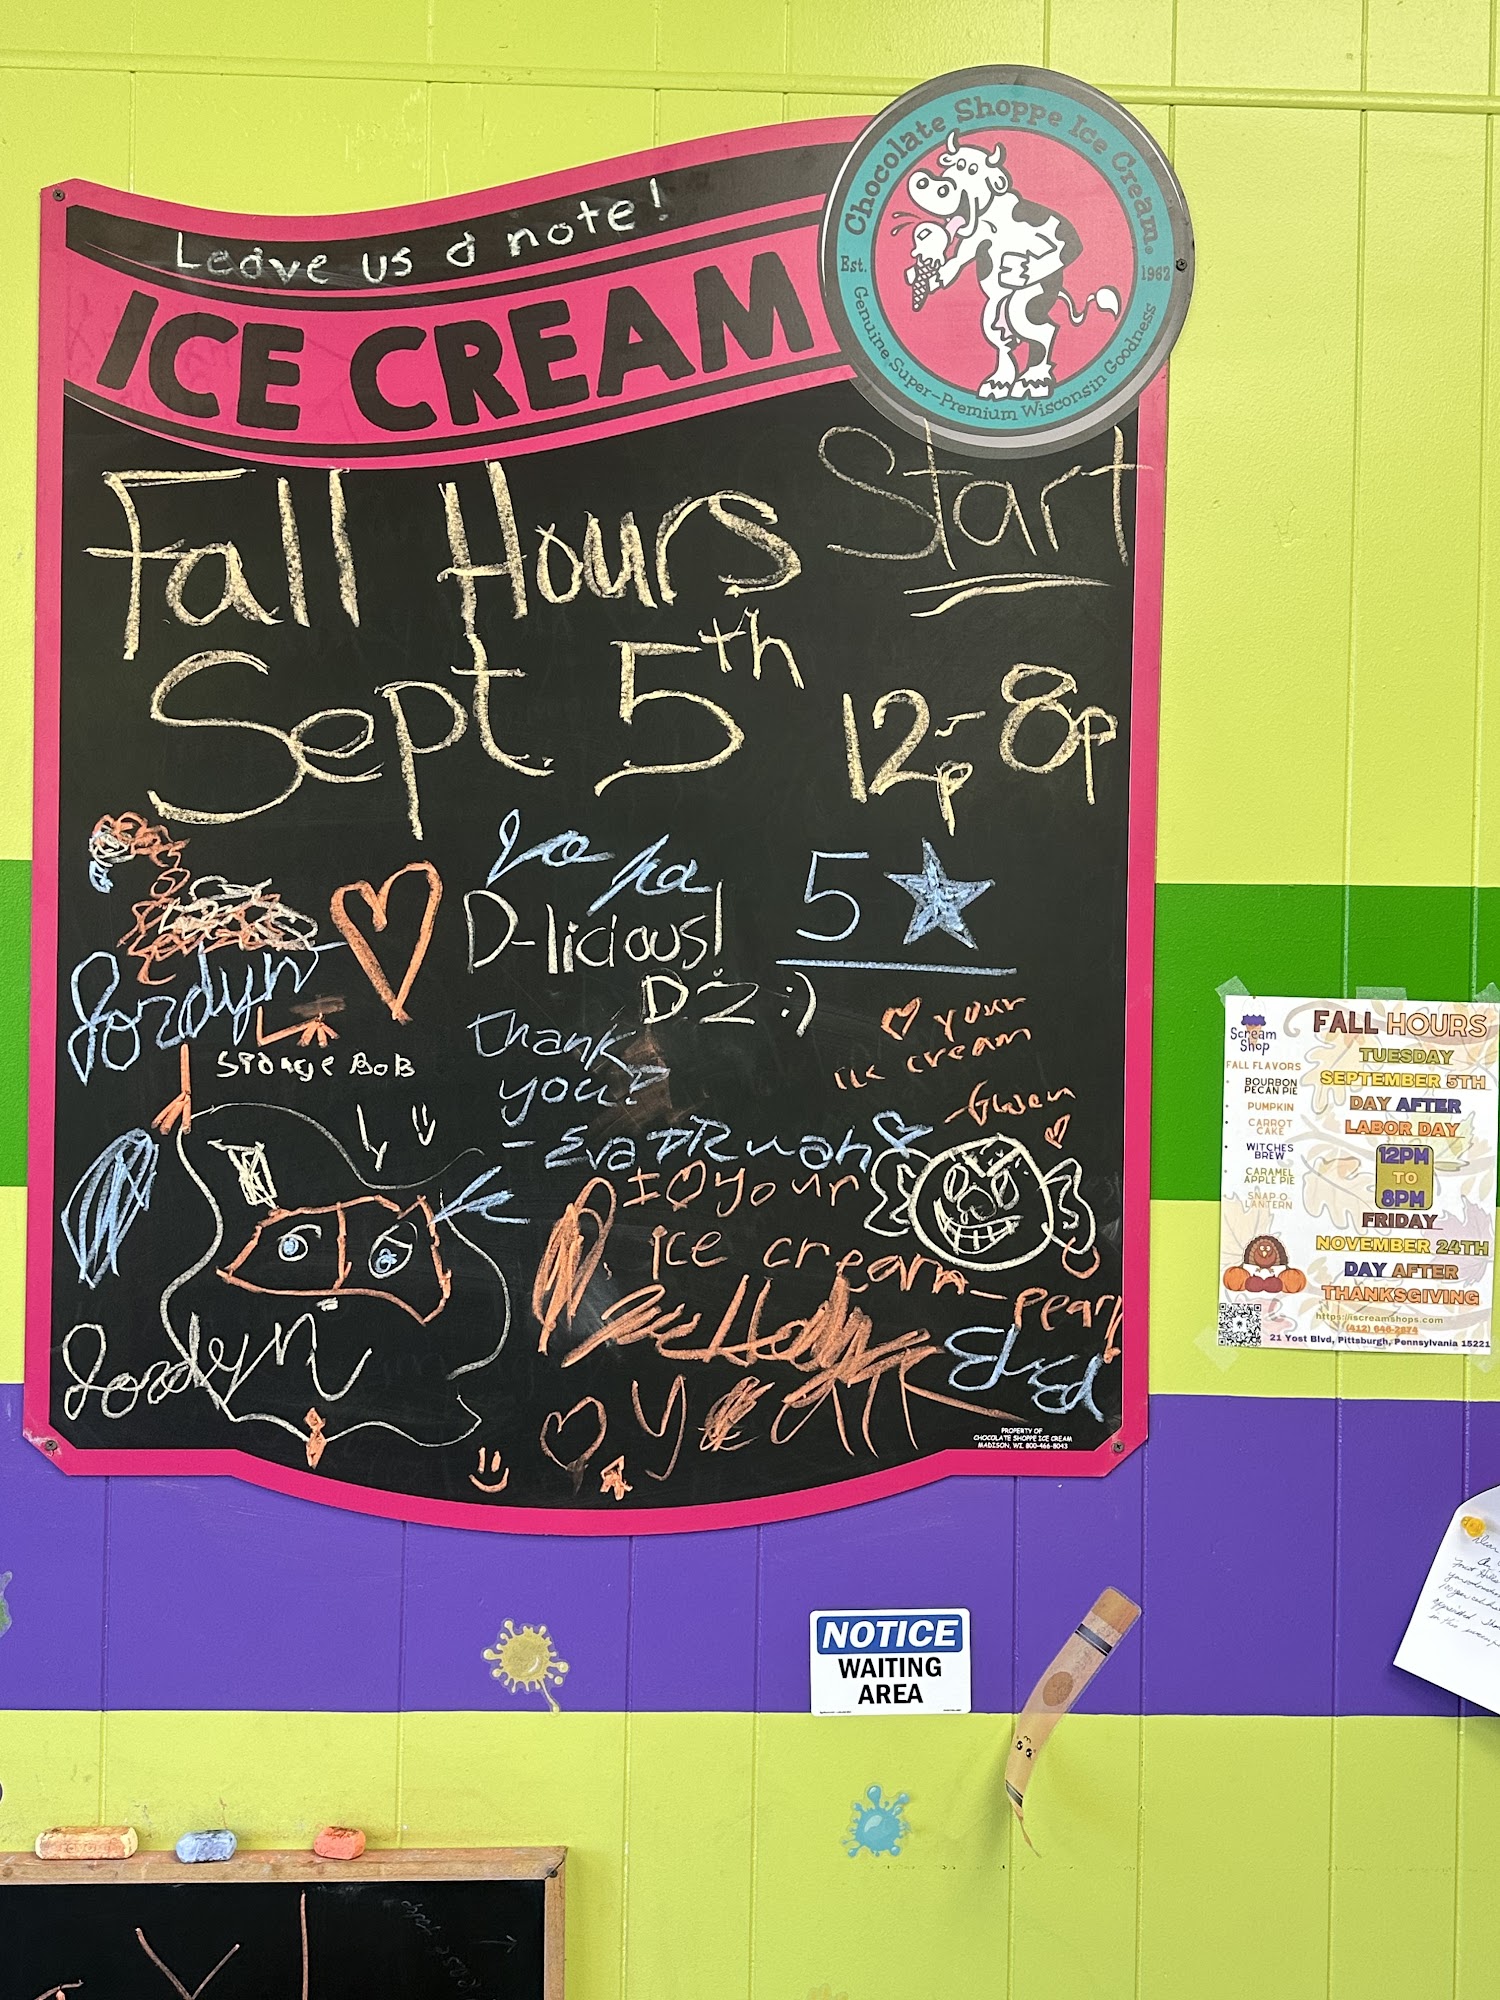 Leave us a note!
ICE CREAM
Chocolate Shoppe Ice Cream®
Est. 1962
Genuine Super-Premium Wisconsin Goodness
Fall Hours Start
Sept. 5th 12p-8p
D-licious! 5
DZ :)
Jordyn
Sponge BoB
thank
you!
- Eva + Ruah
♡ your
ice cream
-Gwen
I ♡ your
ice cream - pearl
Jordyn
PROPERTY OF
CHOCOLATE SHOPPE ICE CREAM
MADISON, WI. 800-466-8043
Scream
Shop
FALL FLAVORS
BOURBON
PECAN PIE
PUMPKIN
CARROT
CAKE
WITCHES
BREW
CARAMEL
APPLE PIE
SNAP O
LANTERN
FALL HOURS
TUESDAY
SEPTEMBER 5TH
DAY AFTER
LABOR DAY
12PM
TO
8PM
FRIDAY
NOVEMBER 24TH
DAY AFTER
THANKSGIVING
https://iscreamshops.com
(412) 646-2874
21 Yost Blvd, Pittsburgh, Pennsylvania 15221
NOTICE
WAITING
AREA